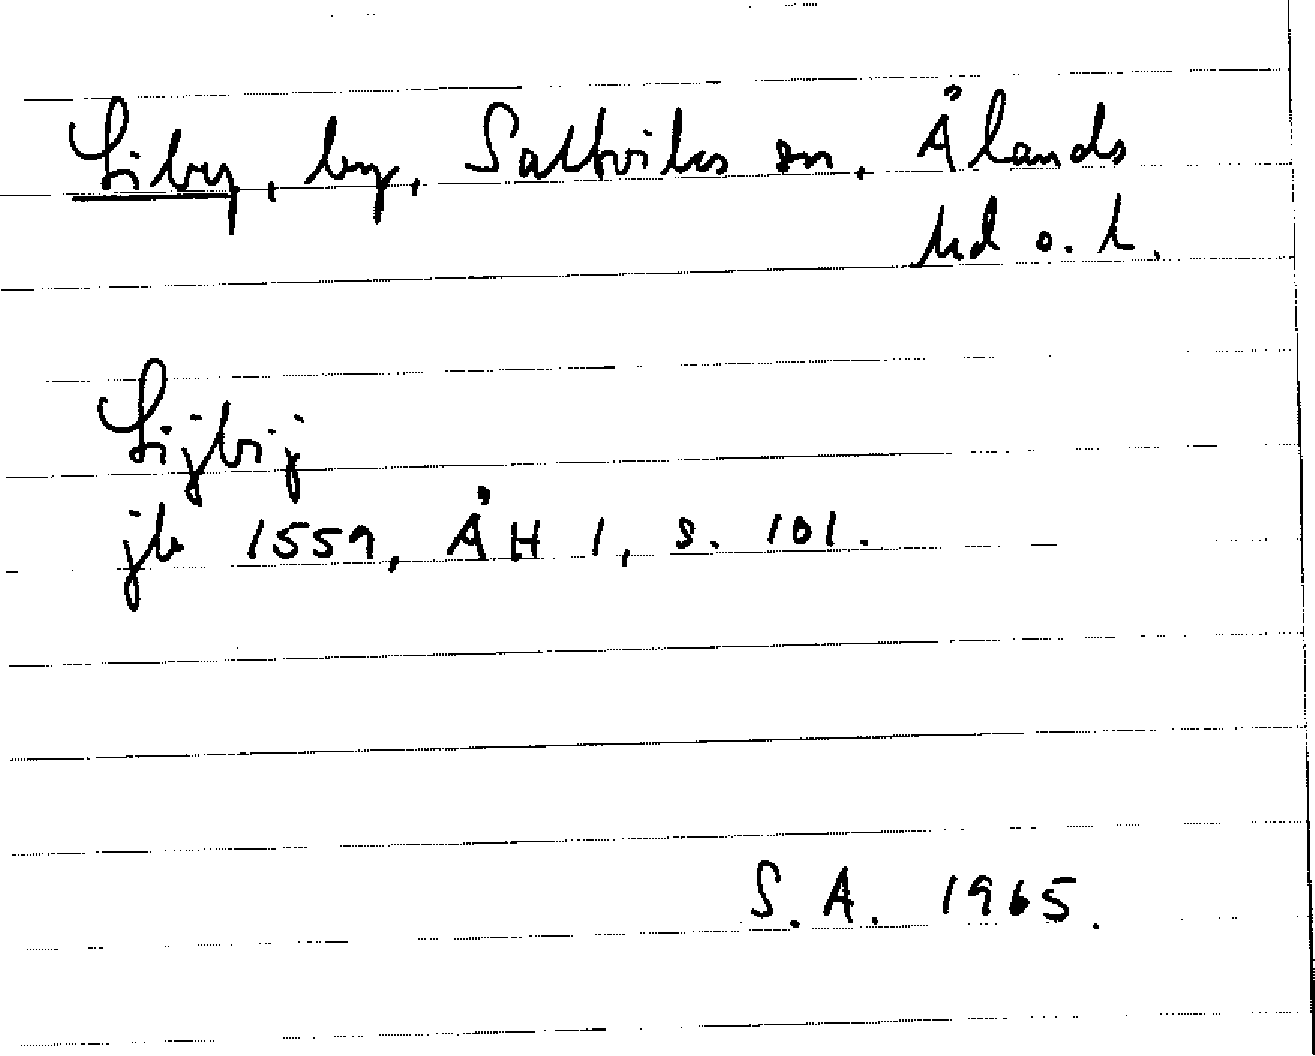 Liby, by, Saltviks sn, Ålands
hd o. l.
Lijbij
jb 1559, ÅH 1, s. 101.
S.A. 1965.